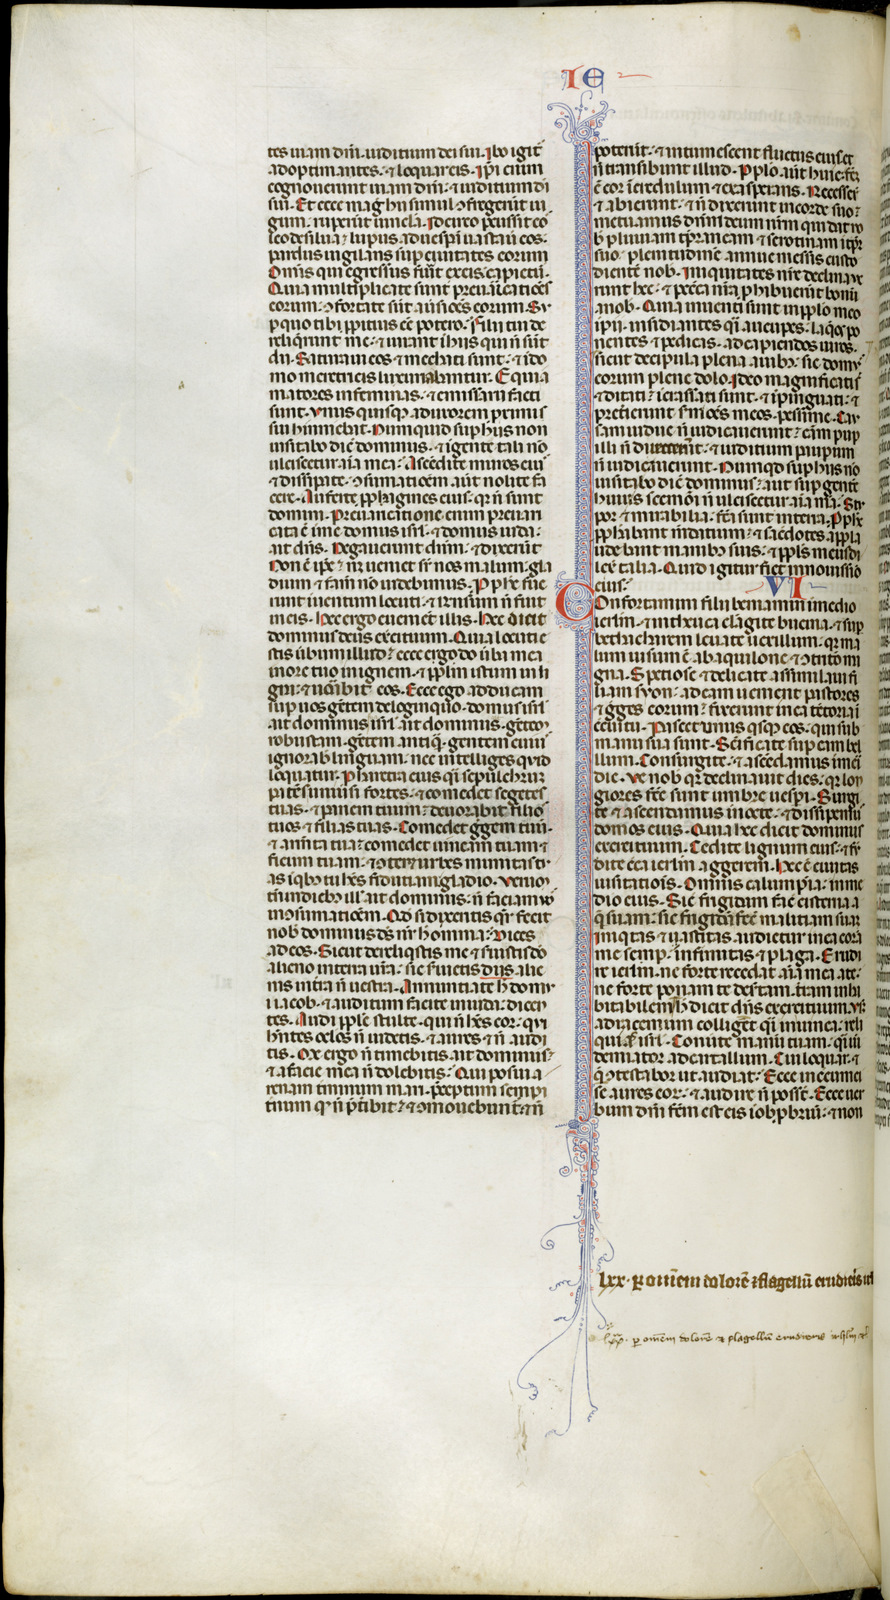 IE
tes uiam dñi. iuditium dei sui. Ibo igit̃
ad optimates. ⁊ loquar eis. Ipi enim
cognouerunt uiam dñi. ⁊ iuditium di
sui. Et ecce mag hii simul ↄfregerūt iu
gum. ruperūt uincla. Idcirco ꝑcussit eo
leo de silua. lupus ad uesꝑū uastauit eos.
pardus uigilans sup ciuitates eorum
Omnis qui egressus fuīt ex eis. capietur.
Quia multiplicate sunt preuaricatiões
eorum. ↄfortate sūt aũsiões eorum. Su
p quo tibi ꝓpitius eẽ potero. Filii tui de
reliqrunt me. ⁊ iurant in hiis qui ñ sūt
dii. Saturaui eos ⁊ mechati sunt. ⁊ ido
mo meretricis luxuriabantur. Equi a
matores in feminas. ⁊ emissarii facti
sunt. Vnus quisq; ad uxorem ꝓximi
sui hinniebat. Numquid sup hiis non
uisitabo dic̃ dominus. ⁊ i gente tali nõ
ulciscetur aĩa mea. Ascẽdite muros eiuˀ
⁊ dissipate. ↄsumatiõem aũt nolite fa
cere. Auferte ꝓpagines eius. qr ñ sunt
domini. Preuaricatione enim preuari
cata ẽ i me domus isrl̃. ⁊ domus iuda.
ait dñs. Negauerunt dñm. ⁊ dixerūt
Non ẽ ip̃e. ⁊ neqꝫ ueniet sr̃ nos malum. gla
dium ⁊ famẽ nõ uidebimus. Pphe fue
runt in uentum locuti. ⁊ rñsum ñ fuit
in eis. Hec ergo euenient illis. Hec dicit
dominus deus exercituum. Quia locuti e
stis ūbum illud. ecce ego do ūba mea
in ore tuo in ignem. ⁊ ppl̃m istum in li
gna. ⁊ uorabit eos. Ecce ego adducam
sup uos gẽtem de longinquo. domus isrl̃
ait dominus. gẽtem
robustam. gẽtem antiq̃. gentem cuius
ignorab linguam. nec intelliges quid
loquatur. Pharetra eius q̃i sepulchrum
patẽs. uniuˀsi fortes. ⁊ comedet segetes
tuas. ⁊ panem tuum. deuorabit filios
tuos ⁊ filias tuas. Comedet gregem tuū.
⁊ armenta tua. comedet uineam tuam ⁊
ficum tuam. ⁊ ↄteret urbes munitas tu
as i qb; tu hẽs fidutiam gladio. Veniē
tñ in dieb; ill̃ ait dominus. ñ faciam uos
in ↄsumatiõem. Qd̃ si dixeritis qr̃ fecit
nob dominus ds̃ nr̃ hẽc omnia. dices
ad eos. Sicut dereliqstis me ⁊ seruistis do
alieno in terra ur̃a. sic seruietis diis alie
nis in tr̃a ñ uestra. Annuntiate h̃ domui
iacob. ⁊ auditum facite in iuda. dicen
tes. Audi pple stulte. qui ñ hẽs cor. qui
hñtes oclos ñ uidetis. ⁊ aures ⁊ ñ audi
tis. Me ergo ñ timebitis ait dominus.
⁊ a facie mea ñ dolebitis. Qui posui a
renam terminum mari. ꝑceptum sempi
tnum qd ñ p̃tibit. ⁊ ↄmouebunt. ⁊ ñ
poterūt. ⁊ intumescent fluctus eius. ⁊
ñ transibunt illud. Pplo aūt huic fc̃m
ẽ cor icredulum ⁊ exasperans. Recesser̃
⁊ abierunt. ⁊ ñ dixerunt in corde suo.
Metuamus dñm deum nr̃m qui dat no
b pluuiam tp̃raneam ⁊ serotinam i tp̃r
suo. plenitudinẽ annue messis custo
dientẽ nob. Iniquitates ur̃e declinaue
runt hec. ⁊ pẽcca ur̃a ꝓhibuerūt bonū
a uob. Quia inuenti sunt in pplo meo
ipii. insidiantes q̃i aucupes. laq̃os po
nentes ⁊ pedicas. ad capiendos uiros.
Sicut decipula plena auib; sic domˀ
eorum plene dolo. Ideo magnificati sũt
⁊ ditati. icrassati sunt. ⁊ ipinguati. ⁊
preterierunt sermões meos pessime. Cau
sam uidue ñ iudicauerunt. cãm pup
illi ñ direxerūt. ⁊ iuditium paupum
ñ iudicauerunt. Numqd sup hiis nõ
uisitabo dic̃ dominus. aut sup gentẽ
huiuscemõi ñ ulciscetur aĩa mẽa. Stu
por ⁊ mirabilia. fc̃a sunt in terra. Pphe
pphabant mẽdatium. ⁊ sacẽdotes appla
udebant manib; suis. ⁊ ppl̃s meus di
lex̃ talia. Quid igitur fiet in nouissimo
eius.
VI
Confortamini filii beniamin in medio
ierl̃m. ⁊ in thecua clãgite bucina. ⁊ sup
bethacharem leuate uexillum. qr ma
lum uisum ẽ ab aquilone. ⁊ ↄtritio ma
gna. Spetiose ⁊ delicate assimilaui fi
liam syon. ad eam uenient pastores
⁊ gges eorum. fixerunt in ea tẽtoria ī
circuitu. Pascet unus qsq; eos. qui sub
manu sua sunt. Sc̃ificate sup eam bel
lum. Consurgite. ⁊ ascẽdamus in mei
die. Ve nob qr declinauit dies. qr lon
giores fc̃e sunt umbre uesꝑi. Surgi
te ⁊ ascendamus in nocte. ⁊ dissipemus
domos eius. Quia hec dicit dominus
exercituum. Cedite lignum eius. ⁊ fũ
dite c̃ca ierl̃m aggerem. Hec ẽ ciuitas
uisitatiõis. Omnis calumpnia in me
dio eius. Sic̃ frigidam fac̃ cisterna a
q̃ suam. sic frigidã fec̃ malitiam suam.
Iniqtas ⁊ uastitas audietur in ea corã
me semp. infirmitas ⁊ plaga. Erudi
re ierl̃m. ne forte recedat aĩa mea a te.
ne forte ponam te desr̃tam. tr̃am inha
bitabilem. Hec dicit dñs exercituum. Vsq;
ad racemum colligẽt q̃i in uinea. reli
quias isrl̃. Conuerte manū tuam. q̃i uin
demiator ad cartallum. Cui loquar. ⁊
qͫ ↄtestabor ut audiat. Ecce in circumci
se aures eor. ⁊ audire ñ possūt. Ecce uer
bum dñi fc̃m est eis i obꝓbriū. ⁊ non
lxx. ꝑ om̃em dolorẽ ⁊ flagellũ erudieris irl̃
lxx. ꝑ om̃em dolorẽ ⁊ flagellũ erudieris irl̃m